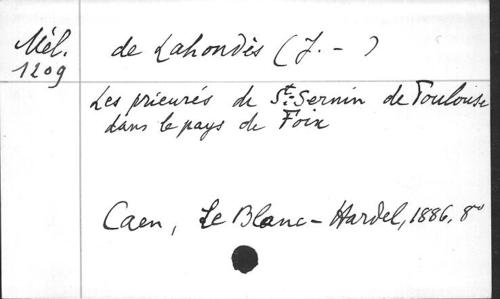 Mél.
1209
de Lahondès (J. - )
Les prieurés de St. Sernin de Toulouse
dans le pays de Foix
Caen, Le Blanc-Hardel, 1886, 8°